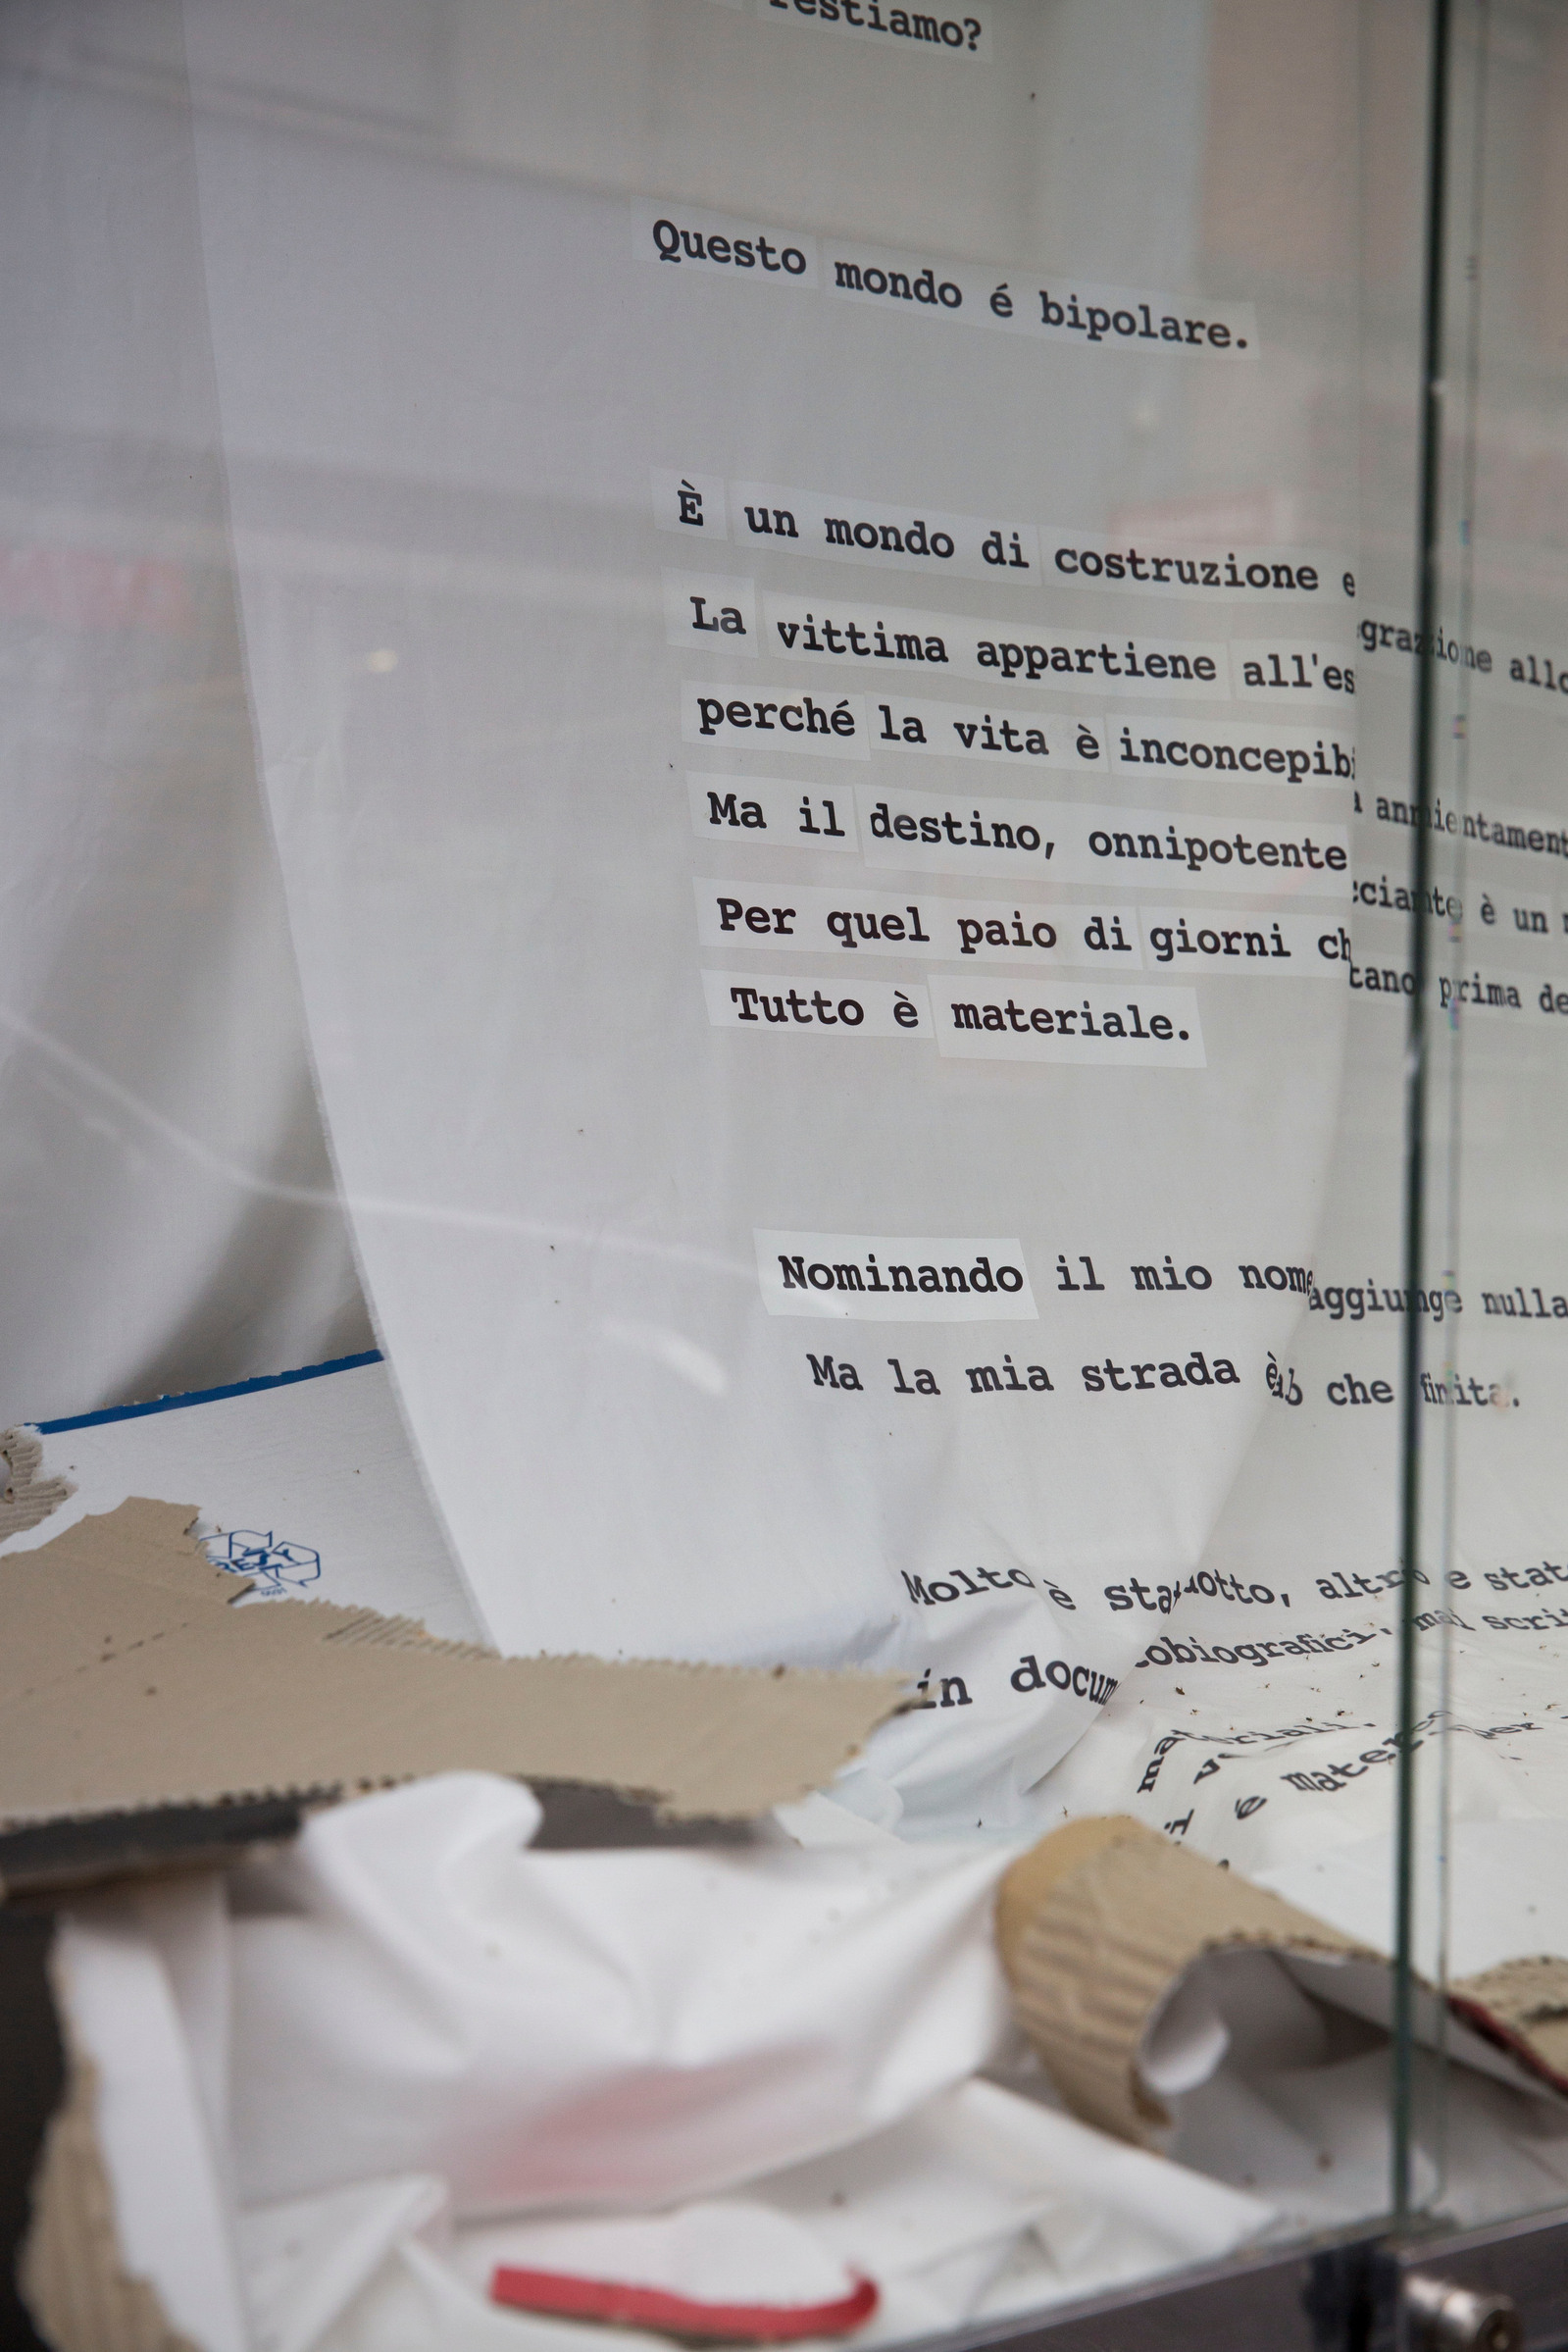 restiamo?
Questo mondo é bipolare.
È un mondo di costruzione e
grazione allo
La vittima appartiene all'es
perché la vita è inconcepibi
annientament
Ma il destino, onnipotente
cciante è un
Per quel paio di giorni ch
tano prima de
Tutto è materiale.
Nominando il mio nome aggiunge nulla
Ma la mia strada è che finita.
Molto è sta otto, altro e stat
in docum obiografici, mai scrit
materiali.
per
è